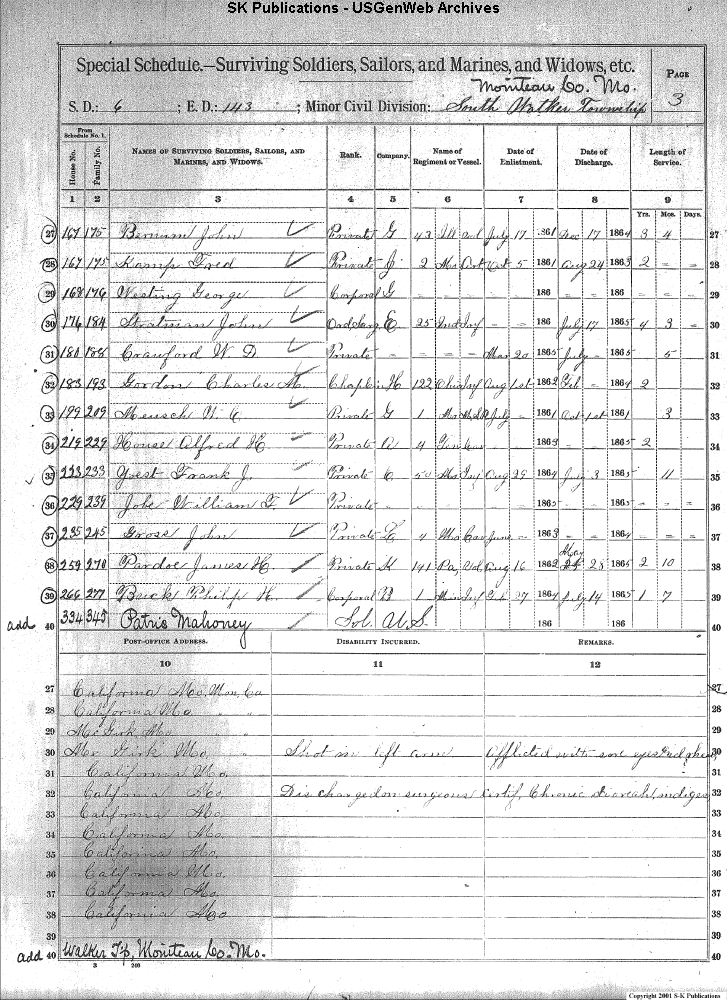 SK Publications - USGenWeb Archives
Special Schedule.—Surviving Soldiers, Sailors, and Marines, and Widows, etc.
Moniteau Co. Mo.
PAGE
3
S. D.: 6 ; E. D.: 143 ; Minor Civil Division: South Walker Township
From Schedule No. 1.
House No. Family No. NAMES OF SURVIVING SOLDIERS, SAILORS, AND MARINES, AND WIDOWS. Rank. Company. Name of Regiment or Vessel. Date of Enlistment. Date of Discharge. Length of Service.
1 2 3 4 5 6 7 8 9
Yrs. Mos. Days.
27 167 175 John Private G 43 Ill Vol July 17 1861 Dec 17 1864 3 4 27
28 167 175 Kamp Fred Private J 2 Mo Art Oct 5 1861 Aug 24 1863 2 - - 28
29 168 176 Westing George Corporal G - - - - 186 - - 186 - - - 29
30 176 184 Stratman John Ord Sarg E 25 Ind Inf - - 186 July 17 1865 4 3 - 30
31 180 188 Crawford W. D. Private - - - - Mar 20 1865 July - 1865 5 31
32 183 193 Gordon Charles M. Chap H 122 Ohio Inf Aug 1st 1862 Feb - 1864 2 32
33 199 209 Meusch W. C Private G 1 July - 1861 Oct 1st 1861 3 33
34 219 229 House Alfred H. Private A 4 - - 1863 - - 1865 2 34
35 233 233 Yoest Frank J. Private C 50 Mo Inf Aug 29 1864 3 1865 11 35
36 229 239 Jobe William F. Private - - - - 1865 - - 1865 - - - 36
37 235 245 Gross John Private L 4 Mo Cav June - 1863 - - 1864 - - 37
38 259 270 Pardoe James H. Private K 141 Pa, Vol Aug 16 1862 May 28 1865 2 10 38
39 266 277 Buck Philip H. Corporal B 1 Feb 27 1864 July 14 1865 1 7 39
add 40 334 345 Patric Mahoney Sol. U.S. 186 186 40
POST-OFFICE ADDRESS. DISABILITY INCURRED. REMARKS.
10 11 12
27 California Mo, Mon, Co 27
28 California Mo. " " 28
29 Mc Girk Mo. 29
30 Mc Girk Mo. " Shot in left arm Afflicted with sore eyes 30
31 California Mo. 31
32 California Mo. Discharged on surgeons certif, Chronic 32
33 California Mo. 33
34 California Mo. 34
35 California Mo. 35
36 California Mo. 36
37 California Mo. 37
38 California Mo 38
39 39
add 40 Walker Tp, Moniteau Co. Mo. 40
Copyright 2001 S-K Publications